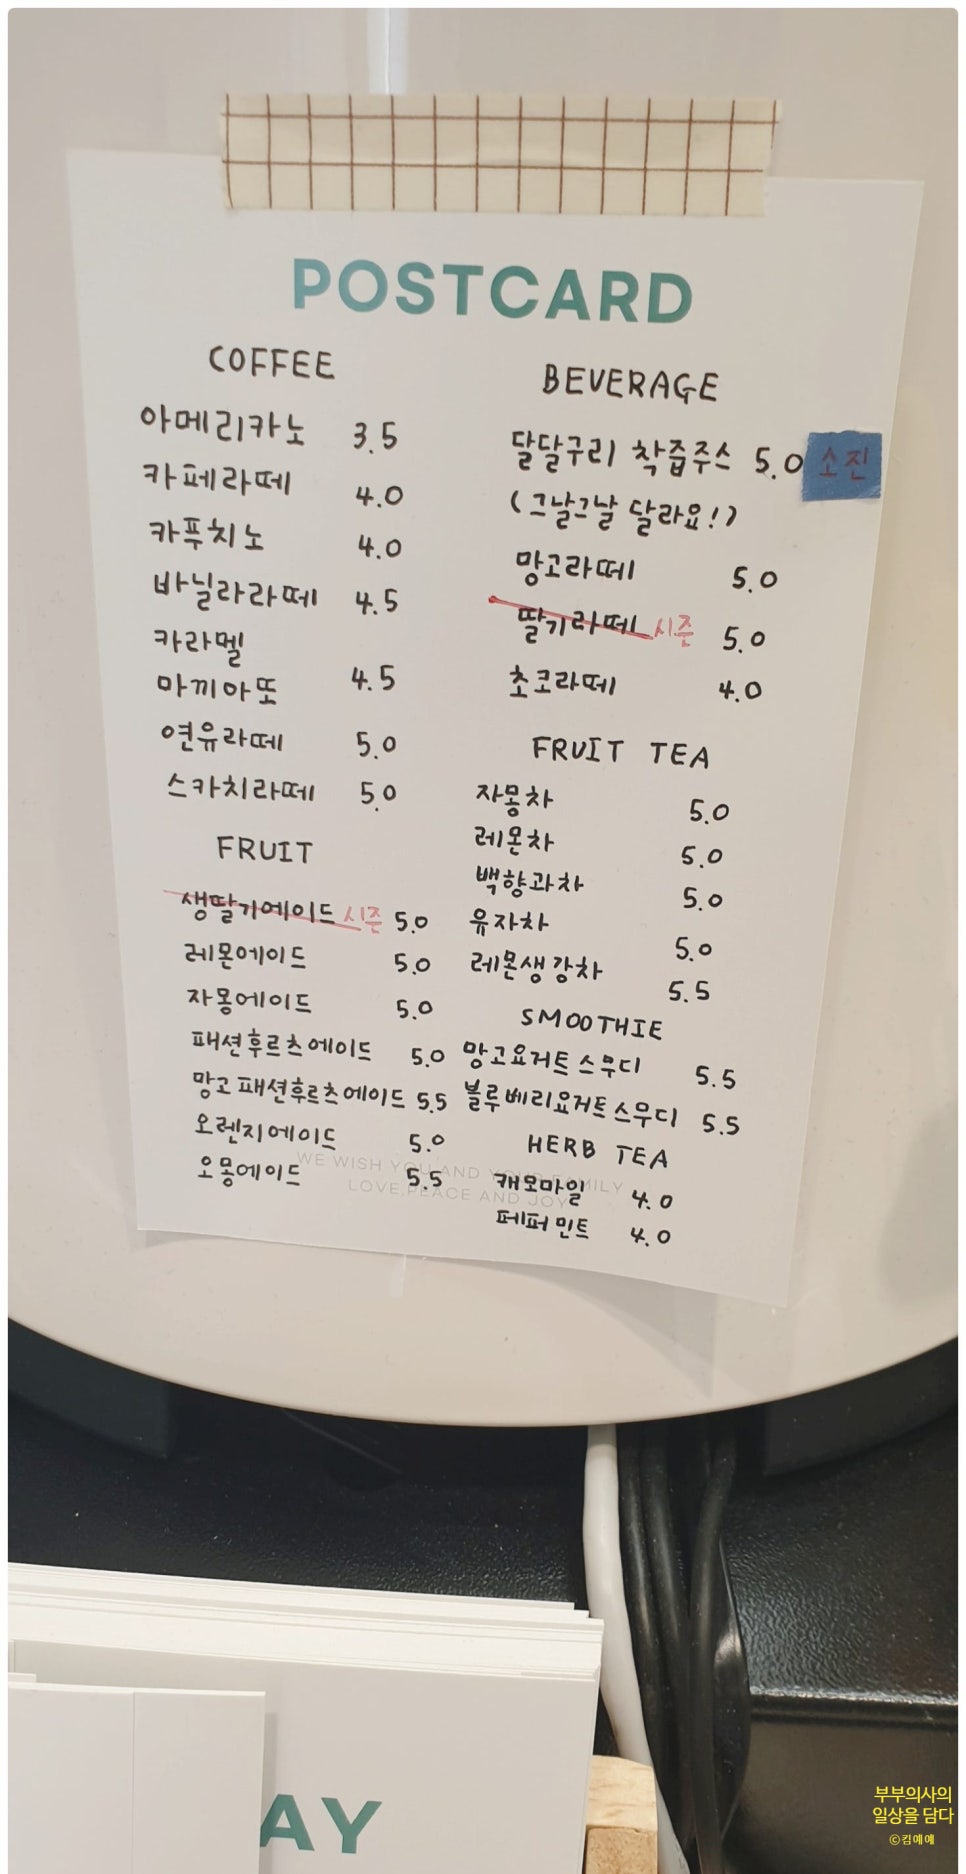 POSTCARD
COFFEE
아메리카노 3.5
카페라떼 4.0
카푸치노 4.0
바닐라라떼 4.5
카라멜
마끼아또 4.5
연유라떼 5.0
스카치라떼 5.0
FRUIT
생딸기에이드 시즌 5.0
레몬에이드 5.0
자몽에이드 5.0
패션후르츠에이드 5.0
망고패션후르츠에이드 5.5
오렌지에이드 5.0
오몽에이드 5.5
BEVERAGE
달달구리 착즙주스 5.0 소진
(그날그날 달라요!)
망고라떼 5.0
딸기라떼 시즌 5.0
초코라떼 4.0
FRUIT TEA
자몽차 5.0
레몬차 5.0
백향과차 5.0
유자차 5.0
레몬생강차 5.5
SMOOTHIE
망고요거트스무디 5.5
블루베리요거트스무디 5.5
HERB TEA
캐모마일 4.0
페퍼민트 4.0
WE WISH YOU AND YOUR FAMILY
LOVE, PEACE AND JOY
AY
부부의사의
일상을 담다
©킴예예